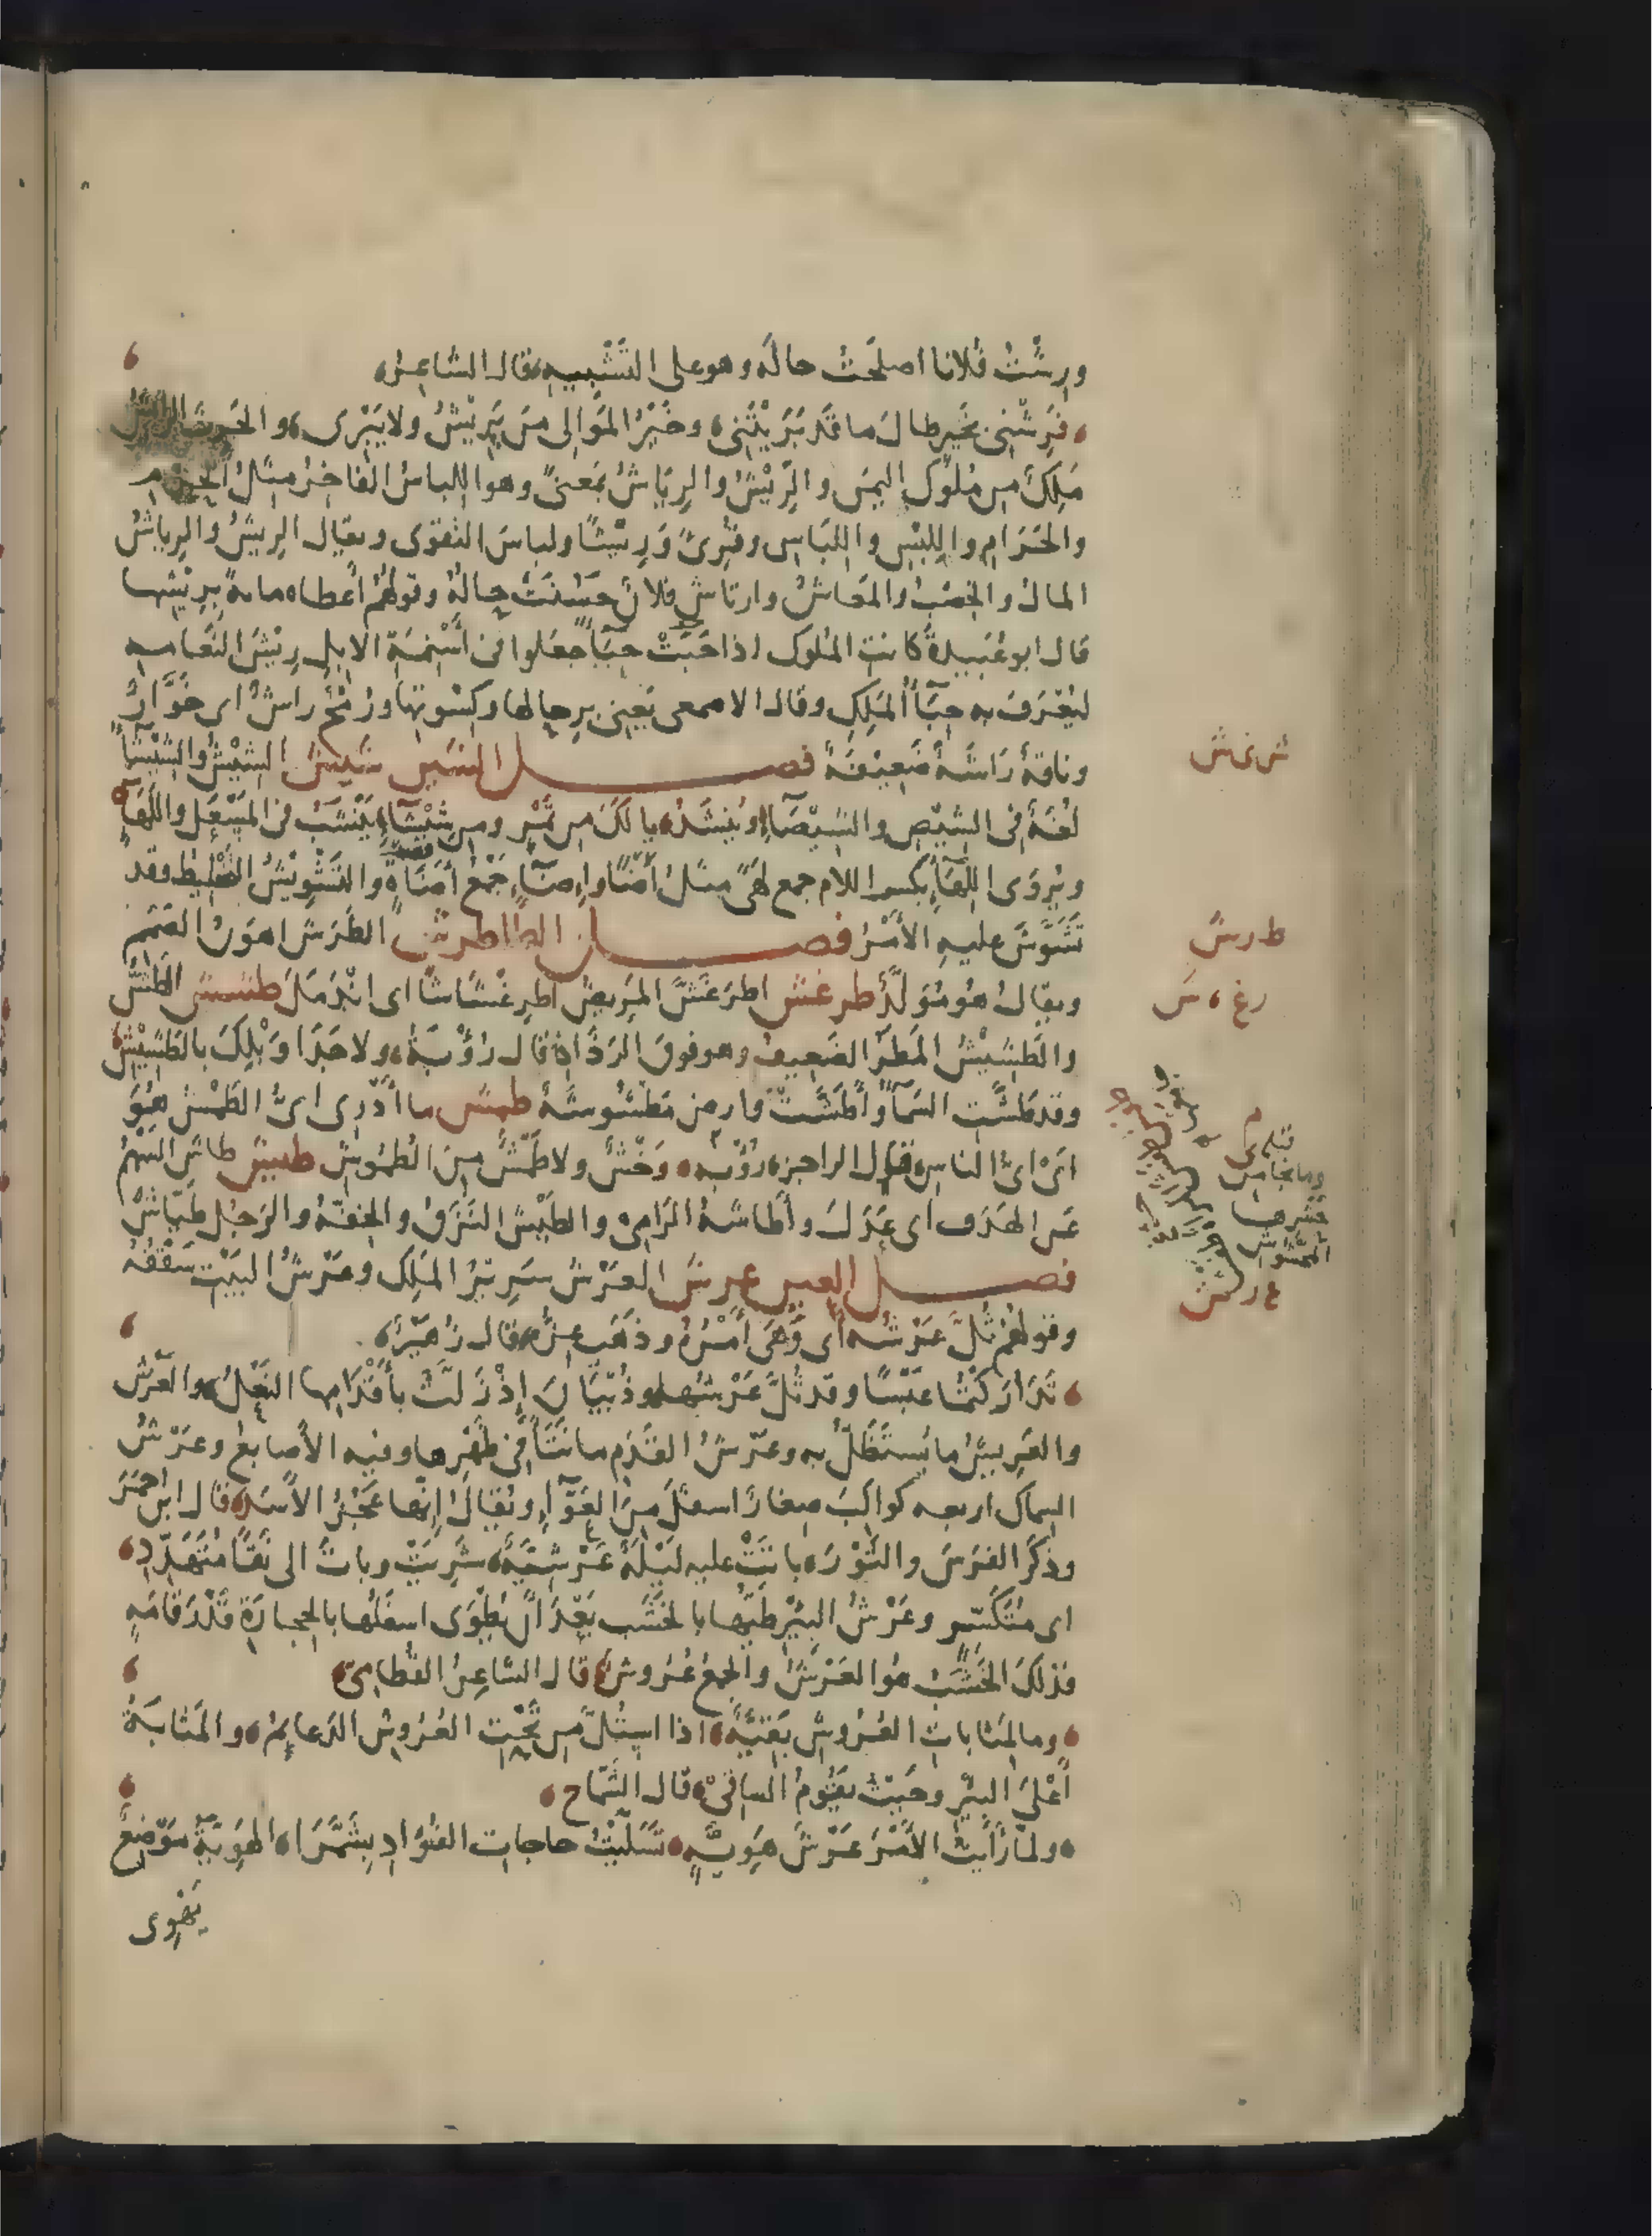 ورِشْتُ فلانا اصلحَتُ حالَه وهو على التَّشْبيه قال الشاعر
فَرِشْنِى بخَير طالَ ما قَد بَرَيْتَنِى وخَيْرُ المَوَالِى مَن يَرِيْشُ ولا يَبْرِى والحَرِث الرائش
مَلِكٌ مِن مُلُوك اليمَن والرِّيْشُ والرِيَاشُ بمَعنىً وهو اللباسُ الفاخِرُ مِثلُ الحِرْم
والحَرَامِ واللِبْسِ واللِّبَاسِ وقُرِئَ وَرِيْشًا ولباسَ التقوى ويقال الرِيشُ والرِياشُ
المالُ والخِصْبُ والمَعاشُ وارتاشَ فلانٌ حَسُنَتْ حالُهُ وقولهُم اَعطاه مايةً بِرِيْشِها
قال ابو عُبَيدةَ كانتِ المُلوك اذا حَبَتْ حِبَآءً جعَلوا فى اَسْنِمَةِ الابِل رِيْشَ النَّعامه
ليُعْرَفَ به حِبَآءُ المَلِكِ وقال الاصمعى يَعنِى بِرِحالِها وكِسْوتِها ورُمْحٌ راشٌ اى خَوَّارٌ
وناقةٌ رَاشَةٌ ضَعِيْفَةٌ فصل الشين شيش الشِيْشُ والشِيْشَآءُ
لُغَةٌ فى الشِيْصِ والشِيْصَآءِ ويُنشَدُ يا لَكَ مِن تَمْرٍ ومِن شِيْشَآءِ يَنْشَبُ فى المَسْعَلِ واللَّهَآءِ
ويُروَى اللِّهَآءِ بكسر اللام جمع لَهًى مثل اَضًا واِضَآءٍ جَمْعُ اَضَاةٍ والتَشْوِيْشُ التَّخْلِيْط وقد
تَشَوَّشَ عليهِ الاَمْرُ فصل الطا طرش الطَرَش اهوَنُ الصَمَم
ويقالُ هُو مُوَلَّدٌ طرغش اطرَغَشَّ المَرِيضُ اطرِغْشَاشًا اى انْدَمَلَ طشش الطَشُّ
والطَشِيْشُ المَطَرُ الضَعِيفُ وهو فوقَ الرَذَاذِ قال رُؤْبَةُ ولا جَدَا وَبْلِكَ بالطَشِيْشِ
وقد طَشَّتِ السَمَآءُ واَطَشَّتْ وارض مَطْشُوشَةٌ طمش ما اَدْرِى اىُّ الطَمْشِ هُوَ
اىْ اىُّ الناسِ قال الراجز رُؤبه وَحْشٌ ولا طَمْشٌ مِنَ الطُمُوشِ طيش طاشَ السَهْمُ
عَن الهَدَف اَى عَدَلَ واَطاشَهُ الرَّامِى والطَيْشُ النَزَقُ والخِفَّةُ والرَجُل طَيَّاشٌ
فصل العين عرش العَرْشُ سَرِيْرُ المَلِك وعَرْشُ البَيْتِ سَقْفُهُ
وقولهُم ثُلَّ عَرْشُه اَى وَهَى اَمْرُهُ وذهَب عِزُّه قال زُهَيْرٌ
تَدَارَكْتُما عَبْسًا وقد ثُلَّ عَرْشُها وذُبْيَانَ اِذْ زَلَّتْ بأَقْدَامِها النَعْلُ والعَرْش
والعَرِيشُ ما يُستَظَلُّ به وعَرْشُ القَدَم ما نَتَأَ فى ظَهْرِها وفيه الاَصابع وعَرْشُ
السِماك اربعه كواكِبَ صغارٌ اسفلَ مِنَ العَوَّآءِ ويُقالُ اِنَّها عَجُزُ الاَسَد قال ابن احمَرَ
وذكَرَ الفرَسَ والثَوْرَ باتَتْ عليه لَيْلَةٌ عَرْشِيَّةٌ شَرِيَتْ وباتَ الى نَقًا مُتَهَدِّدِ
اى مُتَكَسِّر وعَرْشُ البئْرِ طَيُّها بالخَشَب بَعْدَ اَنْ يُطْوَى اسفَلُها بالحِجارَةِ قَدْرَ قامَةٍ
فذلكَ الخَشَبُ هُو العَرْشُ والجمعُ عُرُوشٌ قال الشاعِرُ القُطامِىُّ
وما لِمَثاباتِ العُرُوشِ بَقِيَّةٌ اذا استُلَّ مِن تَحْتِ العُرُوشِ الدَعايِمُ والمَثابَةُ
اَعْلَى البئرِ وحَيْثُ يقُومُ الساقِىْ قال الشَمّاخ
ولمّا رَأَيتُ الاَمْرَ عَرْشَ هَوِيَّةٍ تَسَلَّيْتُ حاجاتِ الفُوَادِ بِشَمَّرَا الهَوِيَّةُ مَوْضِعٌ
يَهْوِى
ش ى ش
ط ر ش
ر غ ش
وما نجا من
حشرها
المحشوش
ع ر ش